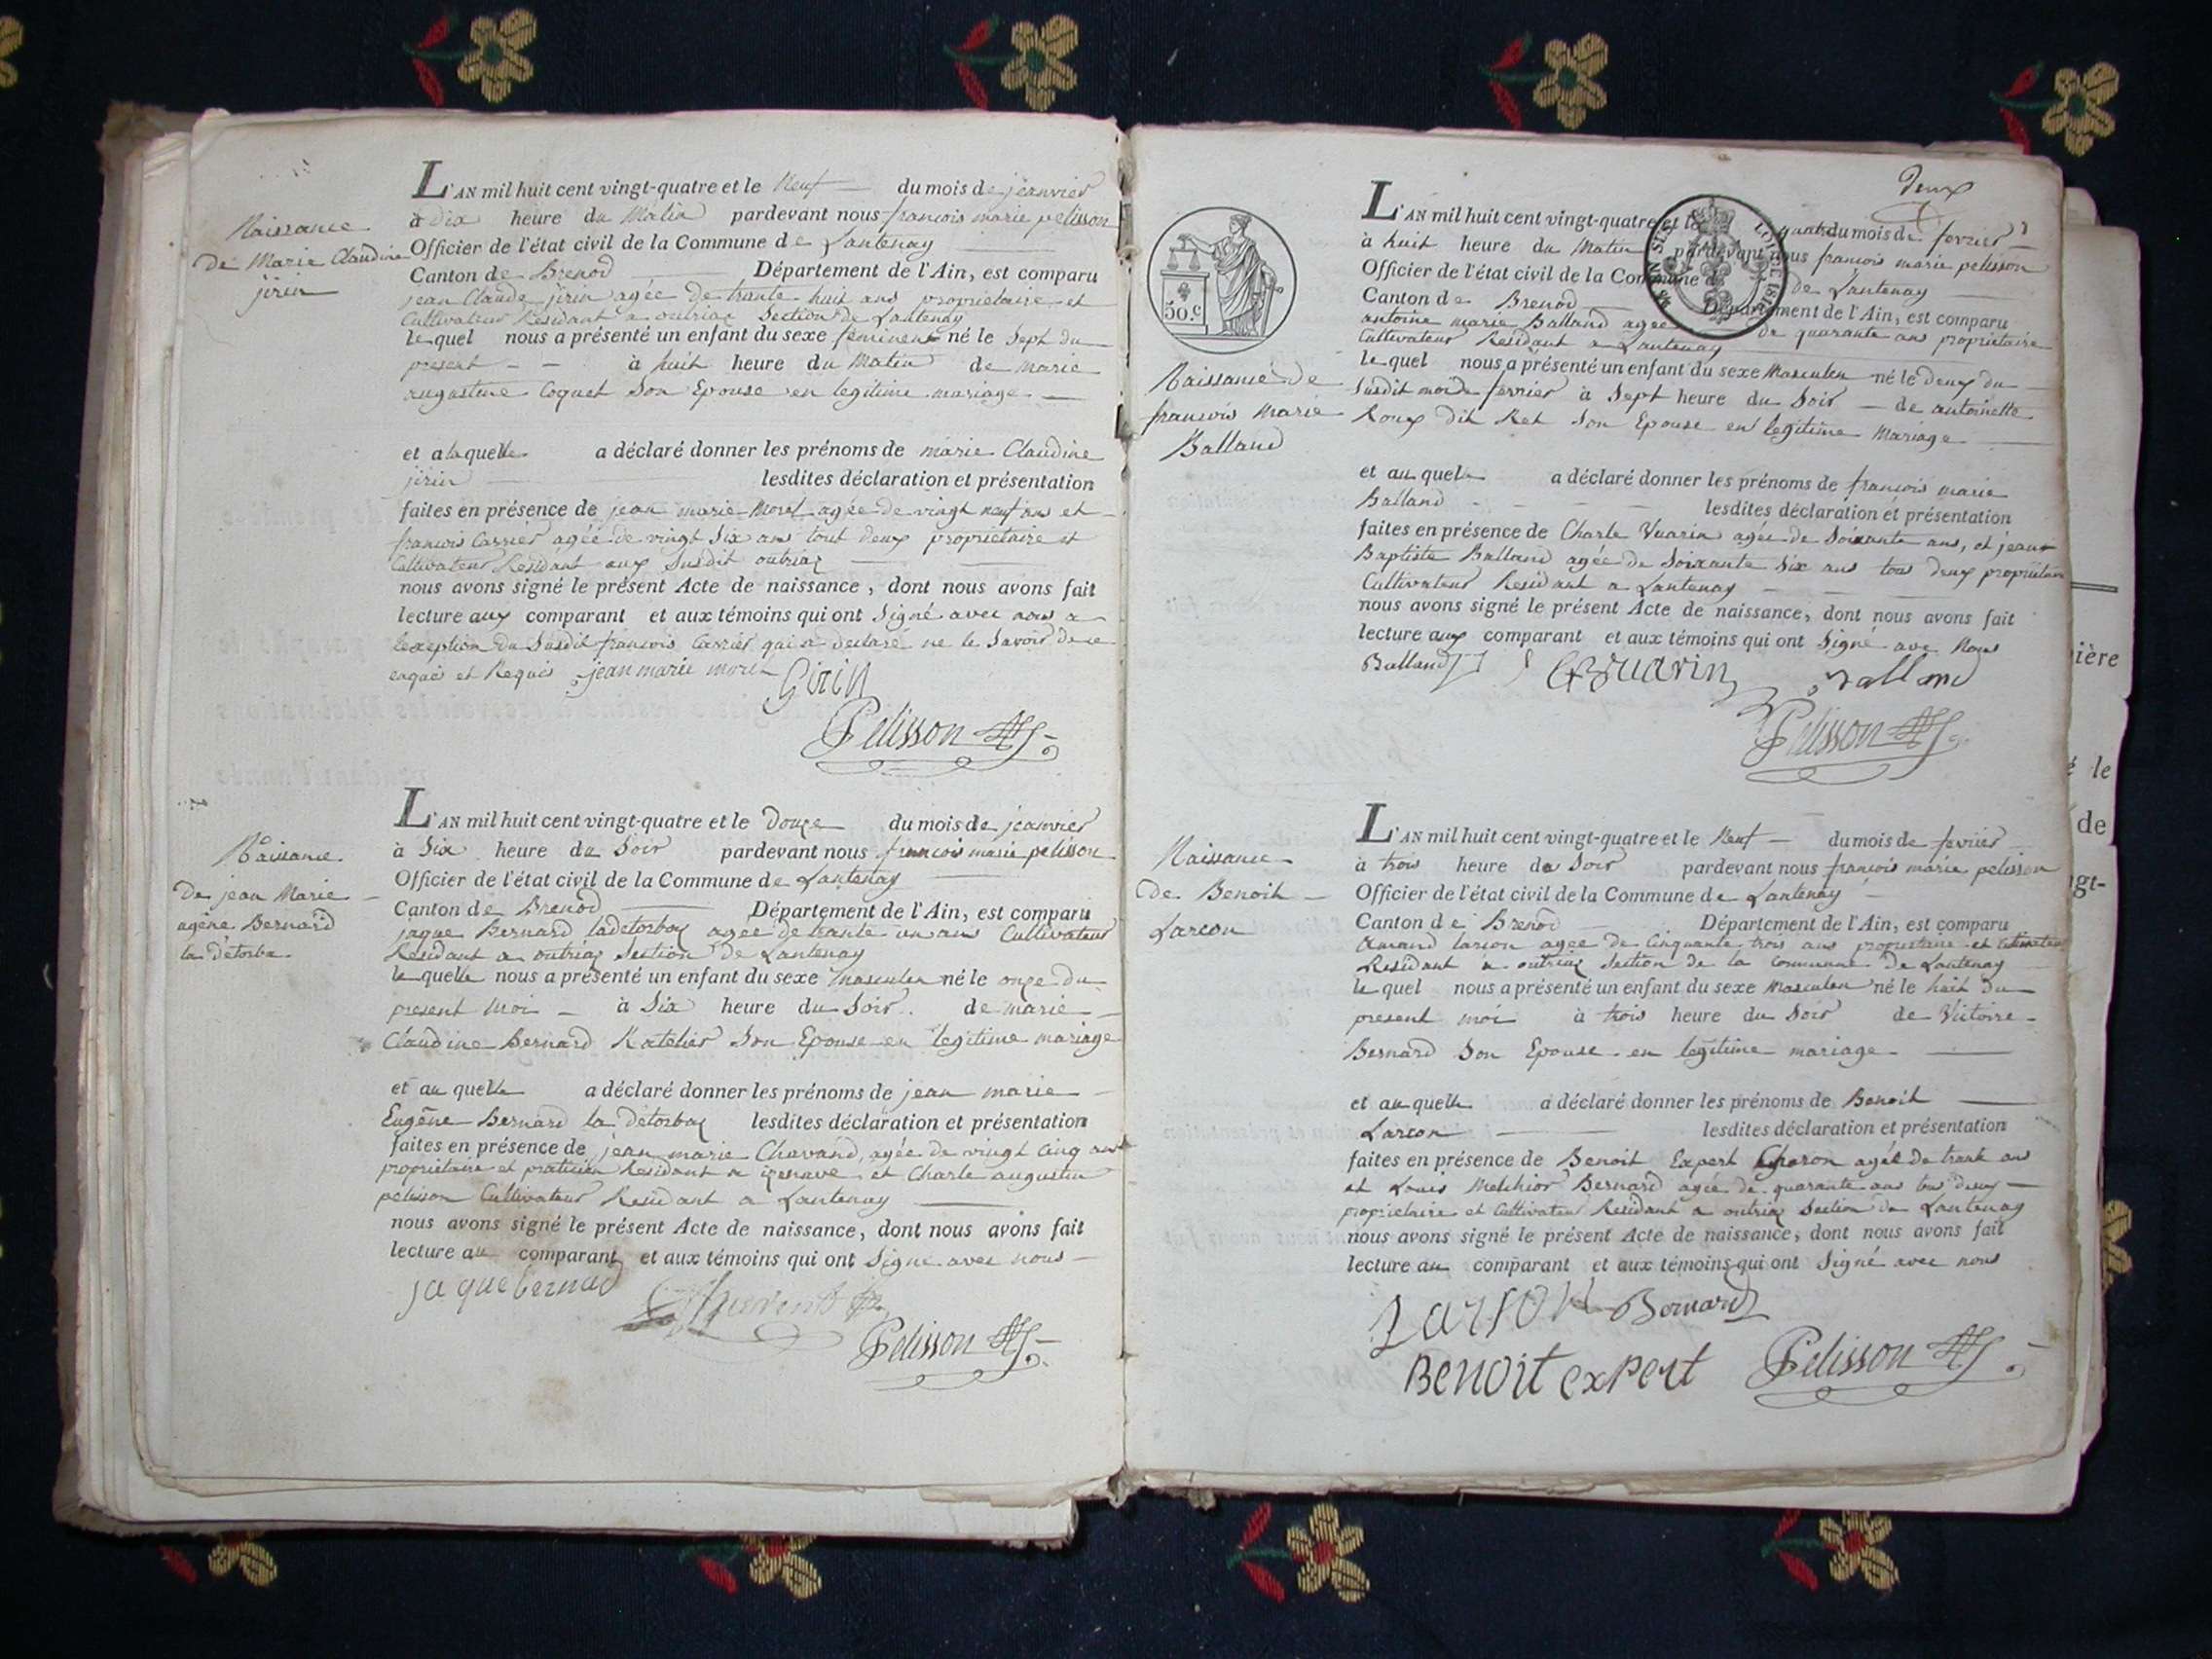 Naissance
de Marie Claudine
jirin
L'AN mil huit cent vingt-quatre et le Neuf du mois de jeanvier
à dix heure du Matin pardevant nous francois marie pelisson
Officier de l'état civil de la Commune de Lantenay
Canton de Brenod Département de l'Ain, est comparu
jean Claude jirin agée de trante huit ans propriétaire et
Cultivateur Residant a outriaz Section de Lantenay
le quel nous a présenté un enfant du sexe feminene né le Sept du
present à huit heure du Matin de marie
augustine Coquet Son Epouse en legitime mariage
et a laquelle a déclaré donner les prénoms de marie Claudine
jirin lesdites déclaration et présentation
faites en présence de jean marie Morel agée de vingt neuf ans et
francois Carrier agée de vingt Six ans tout deux propriétaire et
Cultivateur Residant aux Susdit outriaz
nous avons signé le présent Acte de naissance, dont nous avons fait
lecture aux comparant et aux témoins qui ont Signé avec nous a
lexception du Susdit francois Carrier qui a declaré ne le Savoir de ce
enquis et Requis jean marie morel Girin
Pelisson
Naissance
De jean Marie
ugène Bernard
la détorba
L'AN mil huit cent vingt-quatre et le Douze du mois de jeanvier
à Six heure du Soir pardevant nous francois marie pelisson
Officier de l'état civil de la Commune de Lantenay
Canton de Brenod Département de l'Ain, est comparu
jaque Bernard ladetorbaz agee de trante un ans Cultivateur
Residant a outriaz Section de Lantenay
le quelle nous a présenté un enfant du sexe masculen né le onze du
present moi à Six heure du Soir de marie
Claudine Bernard Ratelier Son Epouse en legitime mariage
et au quelle a déclaré donner les prénoms de jean marie
Eugêne Bernard la détorbaz lesdites déclaration et présentation
faites en présence de jean marie Chavand, agée de vingt Cinq ans
propriétaire et praticien Residant a izenave et Charle augustin
pelisson Cultivateur Residant a Lantenay
nous avons signé le présent Acte de naissance, dont nous avons fait
lecture au comparant et aux témoins qui ont Signe avec nous
jaque bernad
Pelisson
deux
50.c
Naissance de
francois Marie
Balland
L'AN mil huit cent vingt-quatre et le quatre du mois de fevrier
à huit heure du Matin pardevant nous francois marie pelisson
Officier de l'état civil de la Commune de Lantenay
Canton de Brenod Département de l'Ain, est comparu
antoine marie Balland agee de quarante ans propriétaire
Cultivateur Residant a Lantenay
le quel nous a présenté un enfant du sexe Masculen né le Deux du
Susdit moi de fevrier à Sept heure du Soir de antoinette
Roux dit Ret Son Epouse en legitime Mariage
et au quelle a déclaré donner les prénoms de francois marie
Balland lesdites déclaration et présentation
faites en présence de Charle Vuarin agée de Soixante ans, et jean
Baptiste Balland agée de Soixante Six ans tous deux propriétaire
Cultivateur Residant a Lantenay
nous avons signé le présent Acte de naissance, dont nous avons fait
lecture aux comparant et aux témoins qui ont Signé avec Nous
Balland Vuarin Balland
Pelisson
Naissance
de Benoit
Larcon
L'AN mil huit cent vingt-quatre et le Neuf du mois de fevrier
à trois heure du Soir pardevant nous francois marie pelisson
Officier de l'état civil de la Commune de Lantenay
Canton de Brenod Département de l'Ain, est comparu
Amand larcon agee de Cinquante trois ans propriétaire et Cultivateur
Residant a outriaz Section de la Commune de Lantenay
le quel nous a présenté un enfant du sexe Masculen né le huit du
present moi à trois heure du Soir de Victoire
Bernard Son Epouse en legitime mariage
et au quelle a déclaré donner les prénoms de Benoit
Larcon lesdites déclaration et présentation
faites en présence de Benoit Expert Charon agée de trante ans
et Louis Melchior Bernard agée de quarante ans tous deux
propriétaire et Cultivateur Residant a outriaz Section de Lantenay
nous avons signé le présent Acte de naissance, dont nous avons fait
lecture au comparant et aux témoins qui ont Signé avec nous
Larson Bernard
Benoit expert Pelisson
ière
le
de
gt-